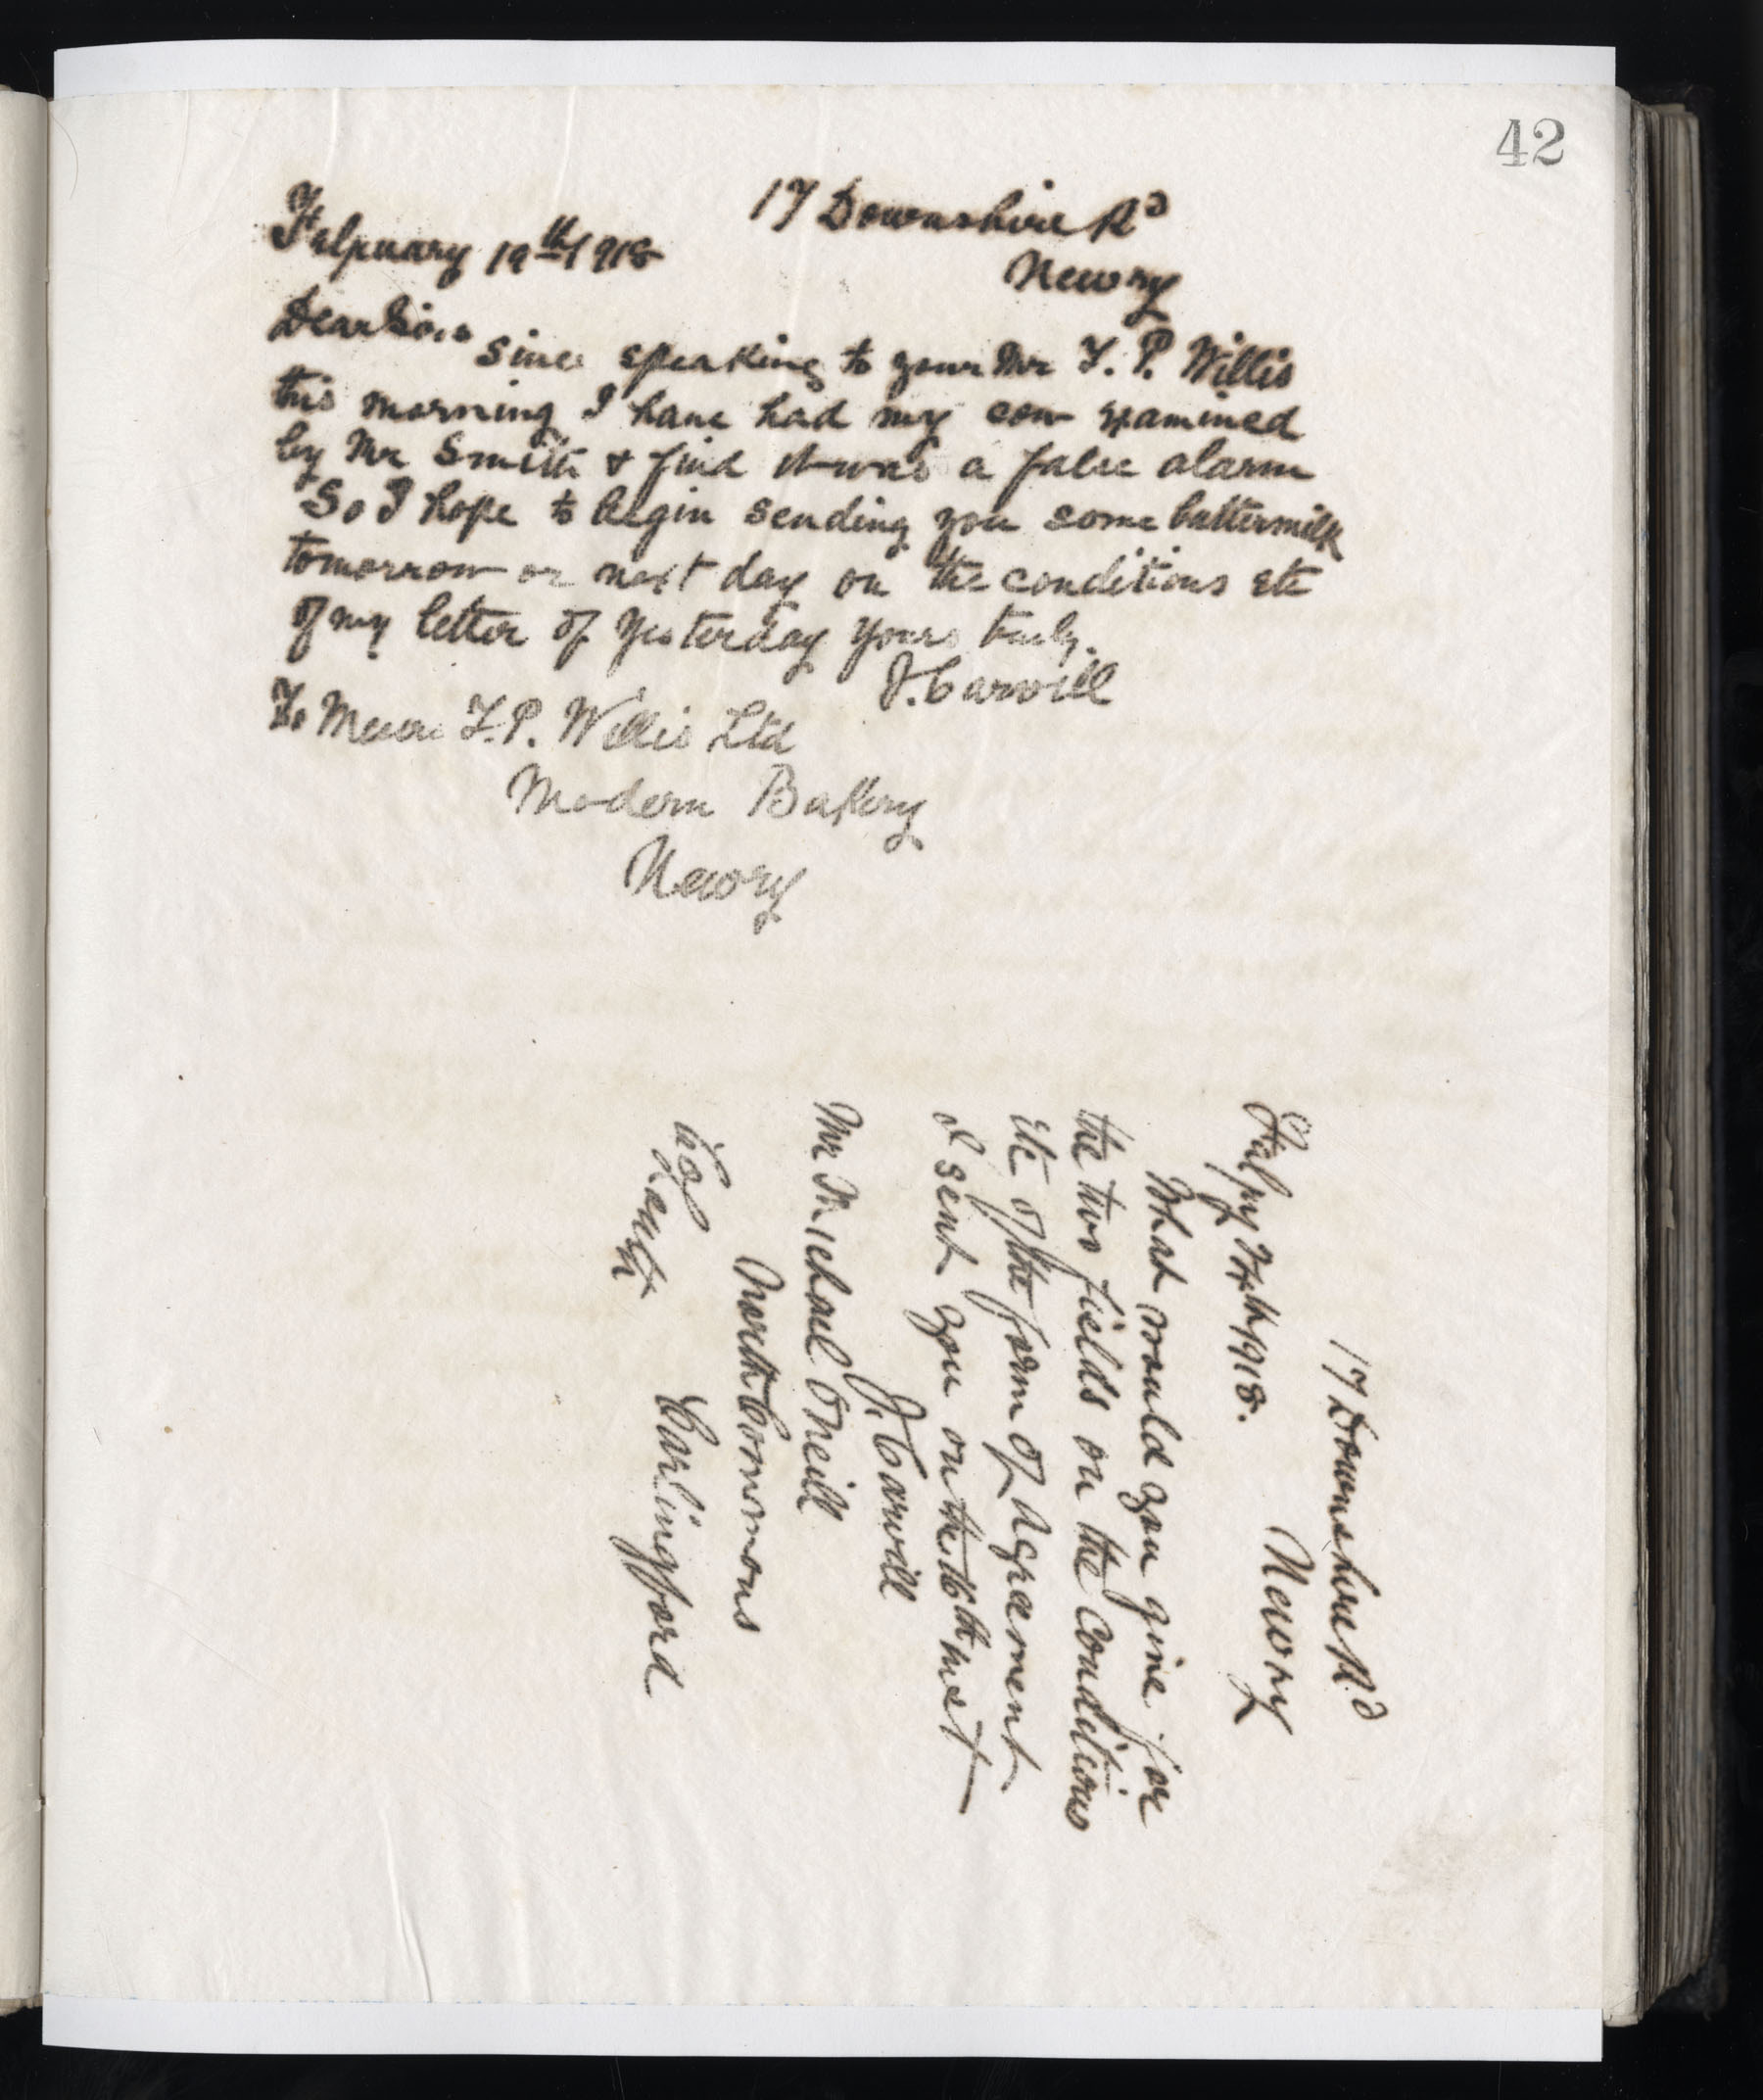 42
17 Downshire Rd
February 19th 1918
Newry
Dear Sirs
Since speaking to your Mr F. P. Willis
this morning I have had my cow examined
by Mr Smith & find it was a false alarm
So I hope to begin sending you some buttermilk
tomorrow or next day on the conditions etc
of my letter of yesterday yours truly.
J. Carvill
To Messrs F.P. Willis Ltd
Modern Bakery
Newry
17 Downshire Rd
Newry
Febry 1918.
What would you give for
the two fields on the conditions
etc of the form of agreement
I sent you on the 16th inst
J. Carvill
Mr Michael O'Neill
North Commons
Carlingford
Co Louth